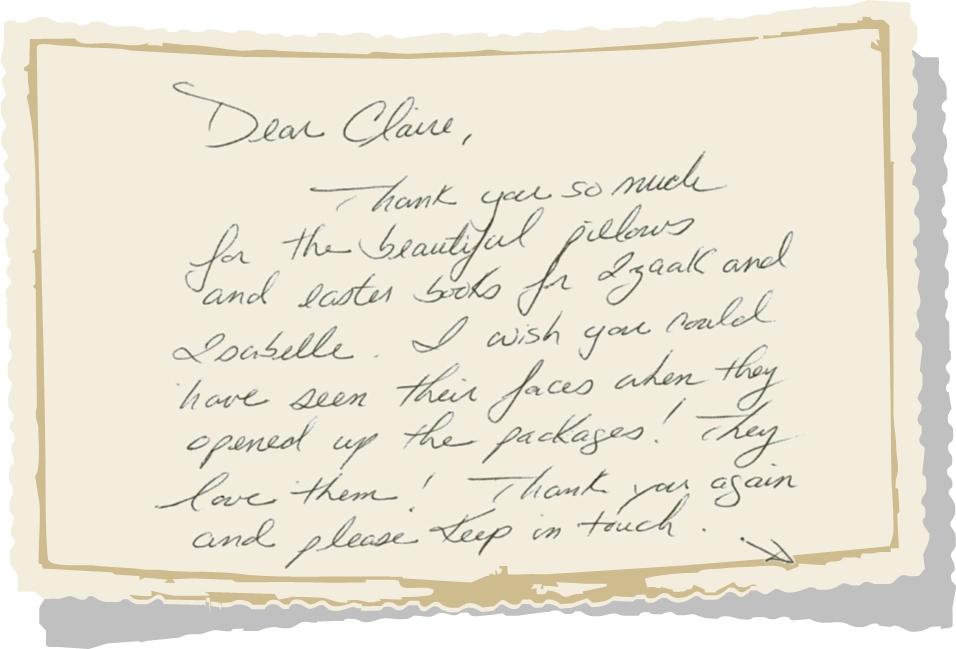 Dear Claire,
Thank you so much
for the beautiful pillows
and easter books for Izaak and
Isabelle. I wish you could
have seen their faces when they
opened up the packages! They
love them! Thank you again
and please keep in touch.